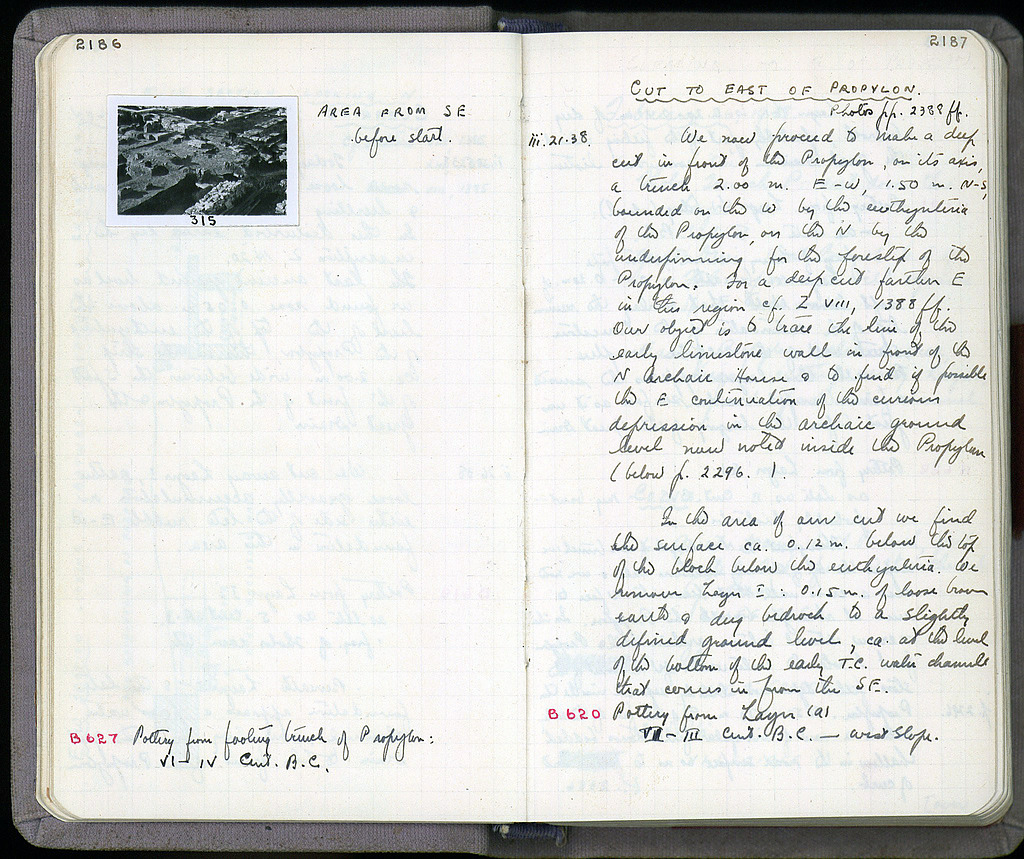 2186
AREA FROM SE
before start.
315
B 627 Pottery from footing trench of Propylon:
VI - IV Cent. B.C.
2187
CUT TO EAST OF PROPYLON.
Photos pp. 2388 ff.
iii.21.38. We now proceed to make a deep
cut in front of the Propylon, on its axis,
a trench 2.00 m. E-W, 1.50 m. N-S,
bounded on the W by the euthynteria
of the Propylon, on the N by the
underpinning for the forestep of the
Propylon. For a deep cut farther E
in this region cf. Z VIII, 1388 ff.
Our object is to trace the line of the
early limestone wall in front of the
N archaic House & to find if possible
the E continuation of the curious
depression in the archaic ground
level now noted inside the Propylon
(below p. 2296. )
In the area of our cut we find
the surface ca. 0.12 m. below the top
of the block below the euthynteria. We
remove Layer I : 0.15 m. of loose brown
earth & dug bedrock to a slightly
defined ground level, ca. at the level
of the bottom of the early T.C. water channel
that comes in from the SE.
B 620 Pottery from Layer (a)
- III Cent. B.C. - West Slope.